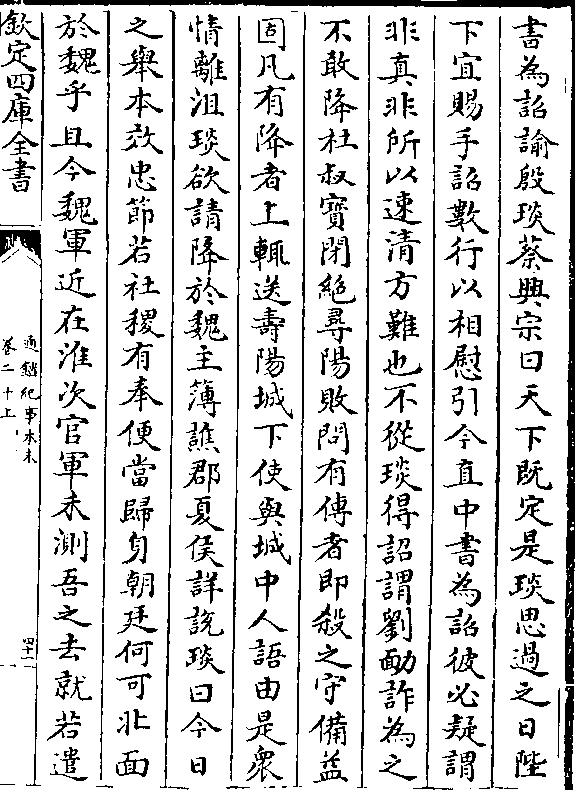 書為詔諭殷琰蔡興宗曰天下既定是琰思過之日陛
下宜賜手詔數行以相慰引今直中書為詔彼必疑謂
非真非所以速清方難也不從琰得詔謂劉勔詐為之
不敢降杜叔寶閉絶尋陽敗問有傳者即殺之守備益
固凡有降者上輒送壽陽城下使與城中人語由是衆
情離沮琰欲請降於魏主簿譙郡夏侯詳說琰曰今日
之舉本效忠節若社稷有奉便當歸身朝廷何可北面
於魏乎且今魏軍近在淮次官軍未測吾之去就若遣
欽定四庫全書
通鑑紀事本末
卷二十上
四十一